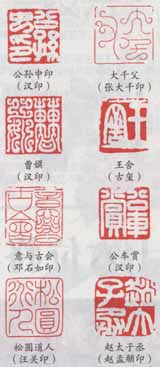 公孙申印
(汉印)
大千父
(张大千印)
曹䜌
(汉印)
王舍
(古玺)
意与古会
(邓石如印)
公车贲
(汉印)
松圆道人
(汪关印)
赵太子丞
(赵孟頫印)